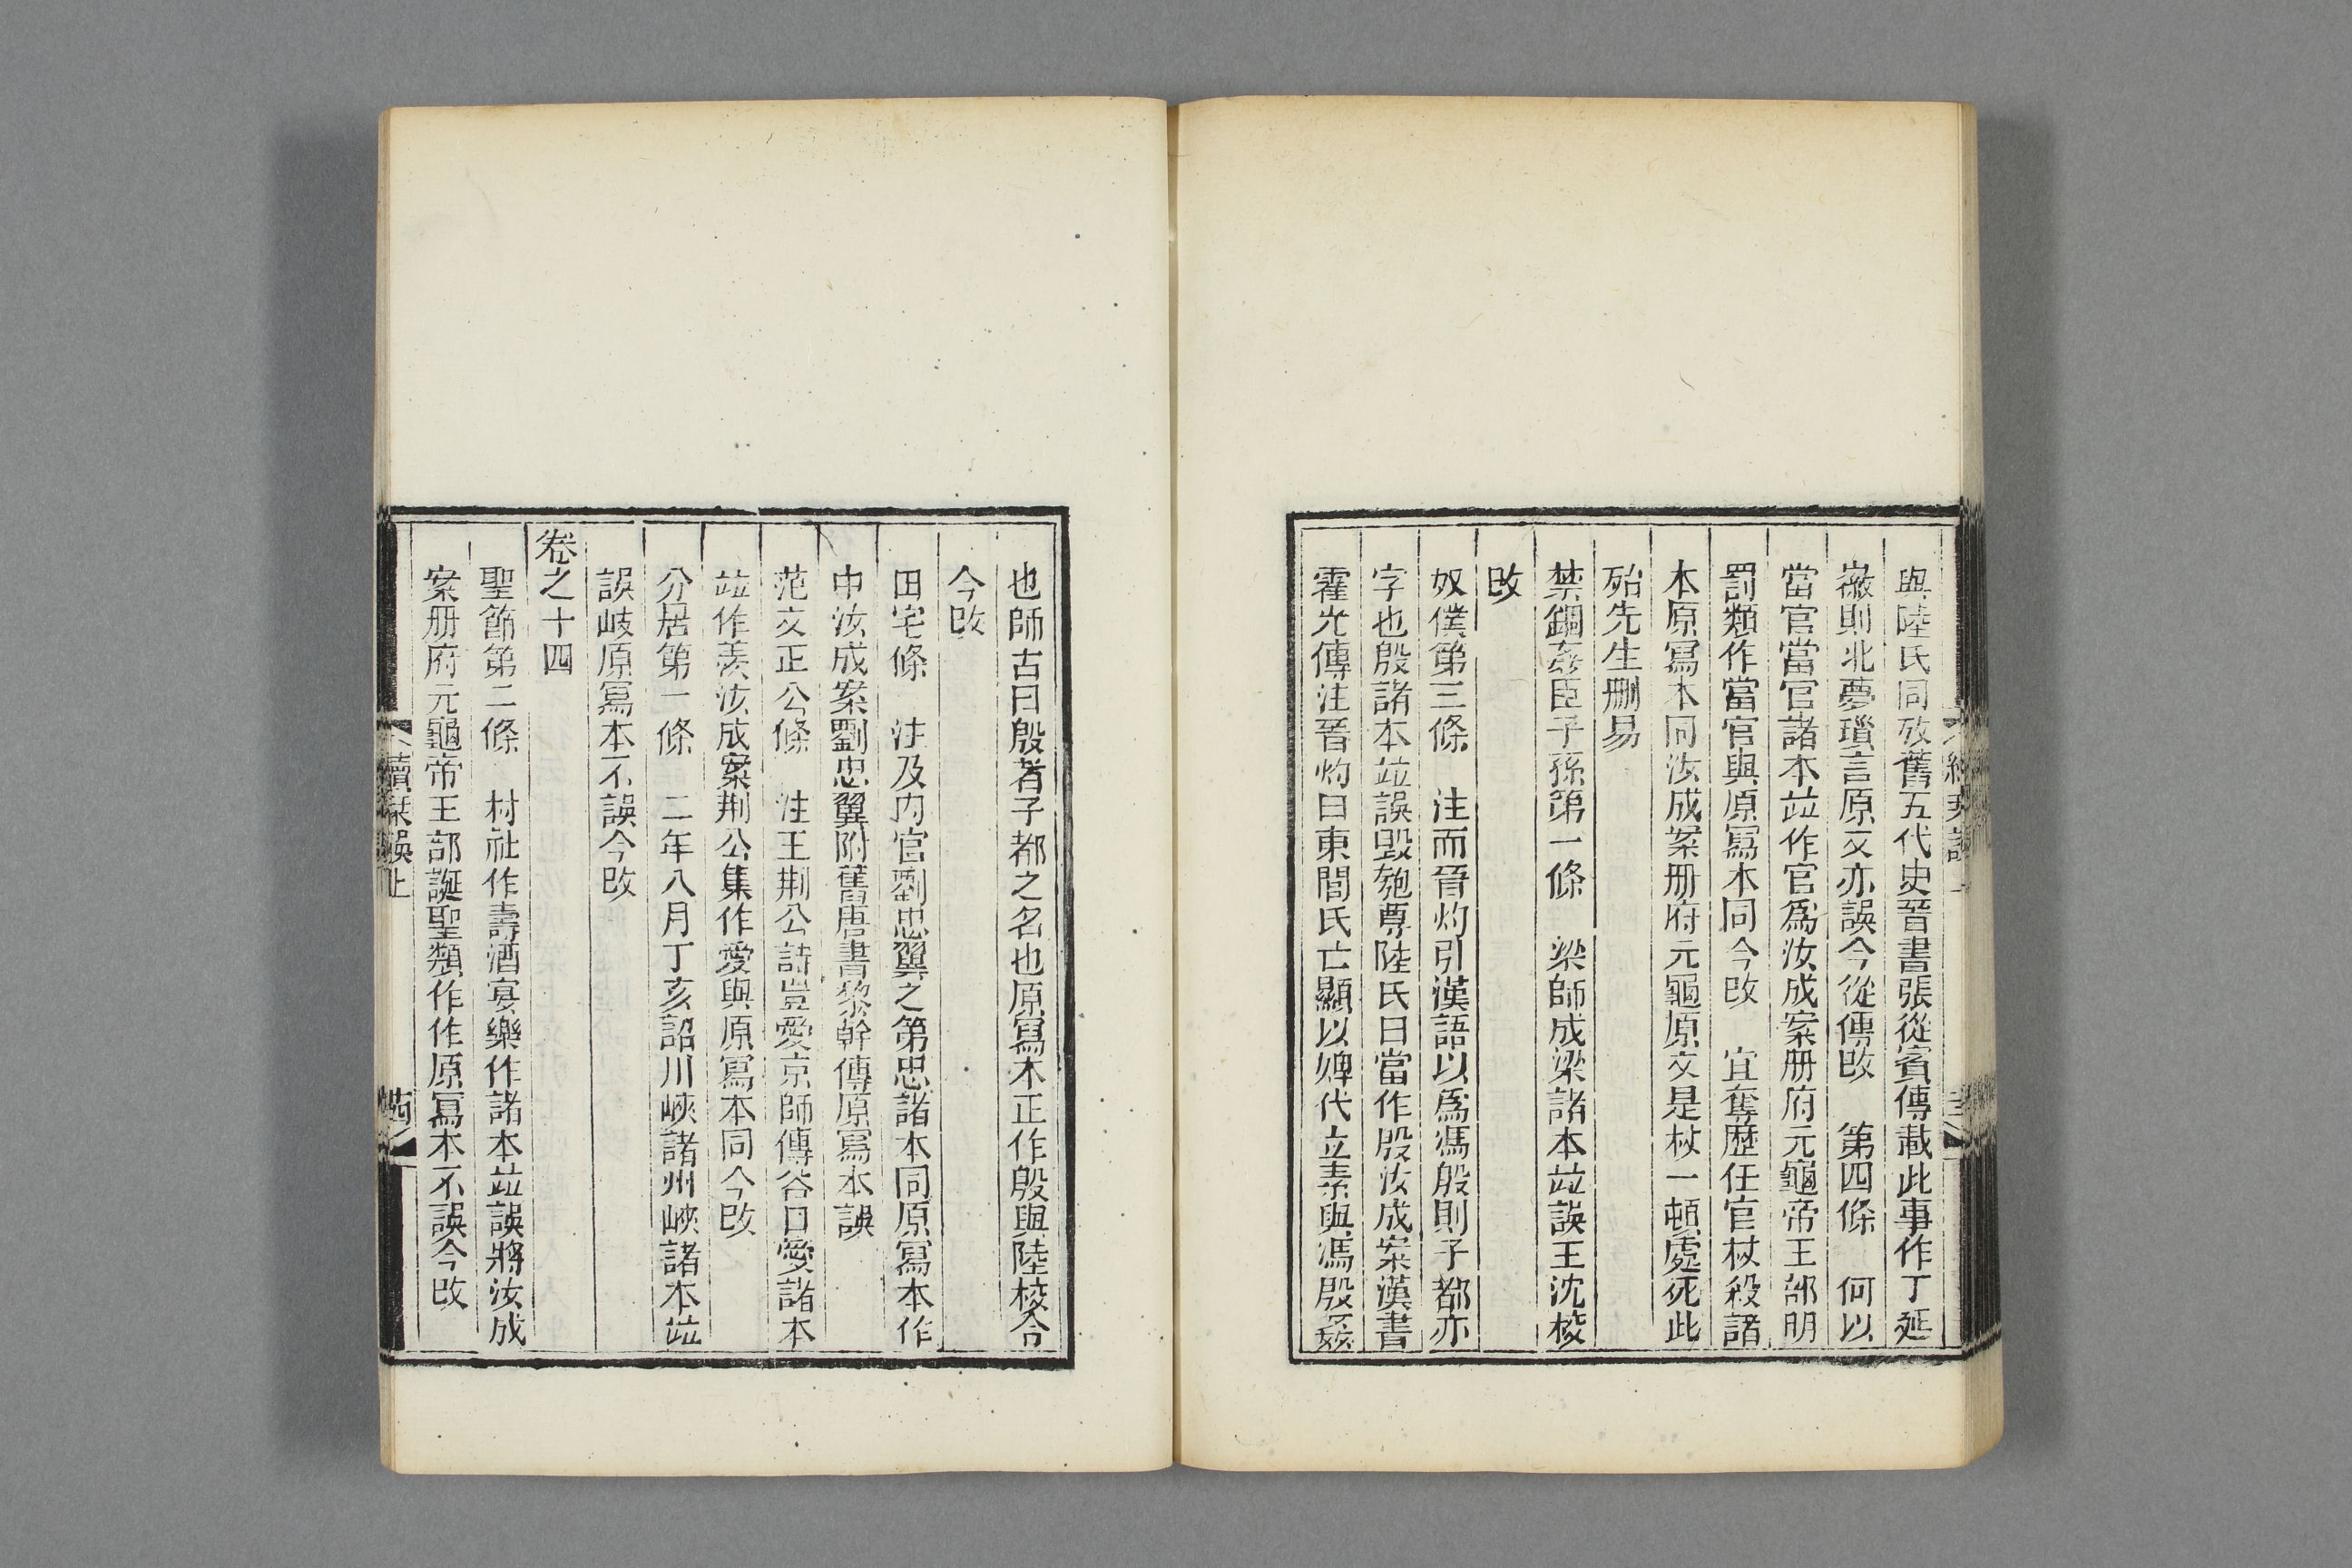 與陸氏同攷舊五代史晉書張從賓傳載此事作丁延
徽則北夢瑣言原文亦誤今從傳改　第四條　何以
當官當官諸本竝作官爲汝成案册府元龜帝王部明
罰類作當官與原寫本同今改　宜奪歷任官杖殺諸
本原寫本同汝成案册府元龜原文是杖一頓處死此
殆先生刪易
禁錮姦臣子孫第一條　梁師成梁諸本竝誤王沈校
改
奴僕第三條　注而晉灼引漢語以爲馮殷則子都亦
字也殷諸本竝誤毀匏尊陸氏曰當作殷汝成案漢書
霍光傳注晉灼曰東閭氏亡顯以婢代立素與馮殷姦
也師古曰殷者子都之名也原寫本正作殷與陸校合
今改
田宅條　注及内官劉忠翼之第忠諸本同原寫本作
中汝成案劉忠翼附舊唐書黎幹傳原寫本誤
范文正公條　注王荆公詩豈愛京師傳谷口愛諸本
竝作羨汝成案荆公集作愛與原寫本同今改
分居第一條　二年八月丁亥詔川峽諸州峽諸本竝
誤岐原寫本不誤今改
卷之十四
聖節第二條　村社作壽酒宴樂作諸本竝誤將汝成
案册府元龜帝王部誕聖類作作原寫本不誤今改
續栞誤上